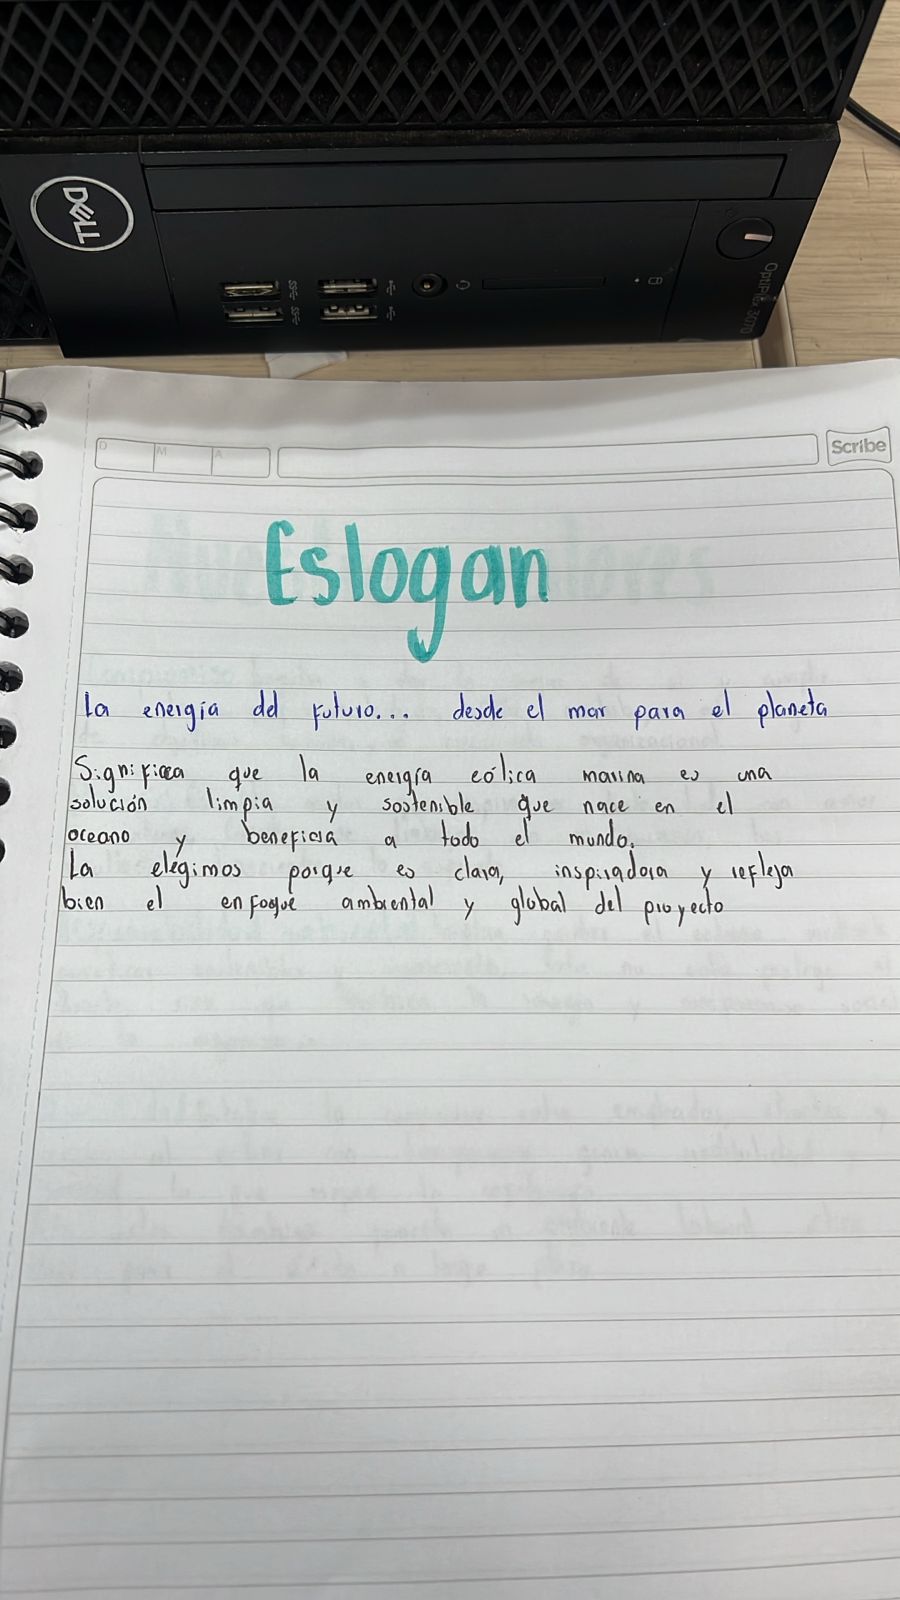 DELL
SS
SS
OptiPlex 3070
D M A
Scribe
Eslogan
La energía del futuro... desde el mar para el planeta
Significa que la energía eólica marina es una
solución limpia y sostenible que nace en el
oceano y beneficia a todo el mundo.
La elegimos porque es clara, inspiradora y refleja
bien el enfoque ambiental y global del proyecto